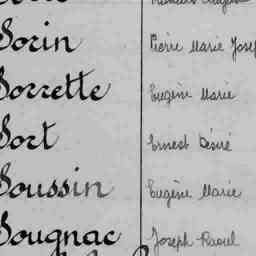 Sorin Pierre Marie Josef
Sorrette Eugène Marie
Sort Ernest Désiré
Soussin Eugène Marie
Sougnac Joseph Raoul